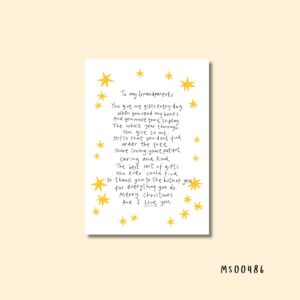 To my Grandparents
You give me gifts every day
when you read my books
And you more time to play
The whole year through
You give to me
Gifts that you don't find
under the tree
Youre loving youre patient
Caring and kind
The best sort of gifts
You ever could find
So thank you to the both of you
For everything you do
Merry Christmas
And I love you
MS00486